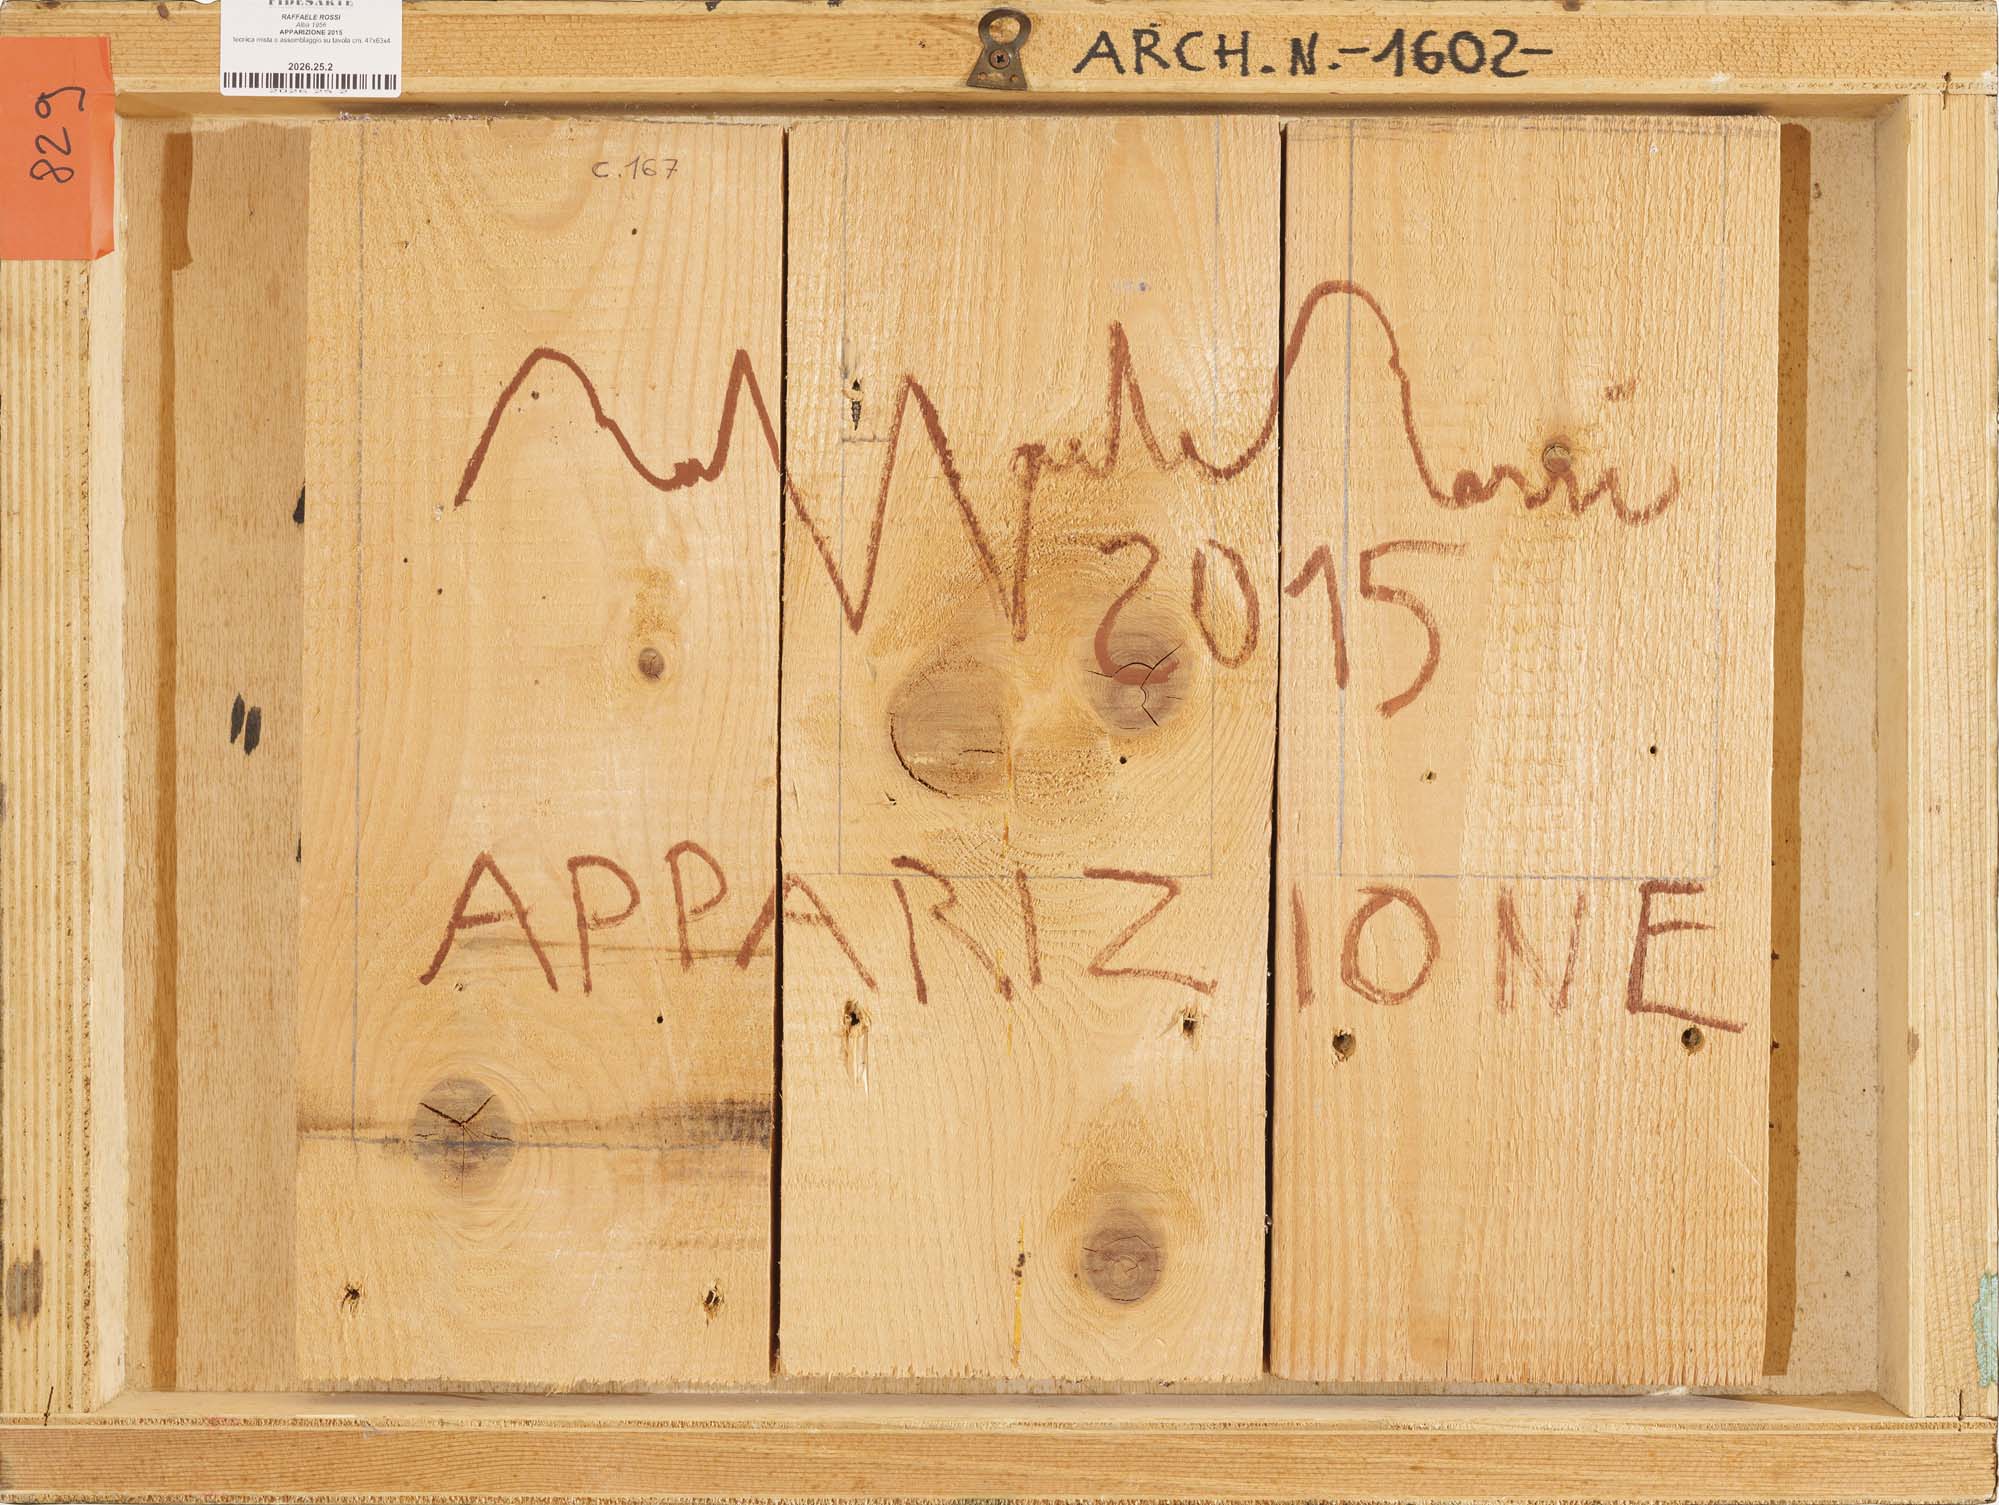 FIDESARTE
RAFFAELE ROSSI
Alba 1956
APPARIZIONE 2015
tecnica mista e assemblaggio su tavola cm. 47x63x4
2026.25.2
2026.25.2
829
ARCH. N. -1602-
C.167
Raffaele Rossi
2015
APPARIZIONE